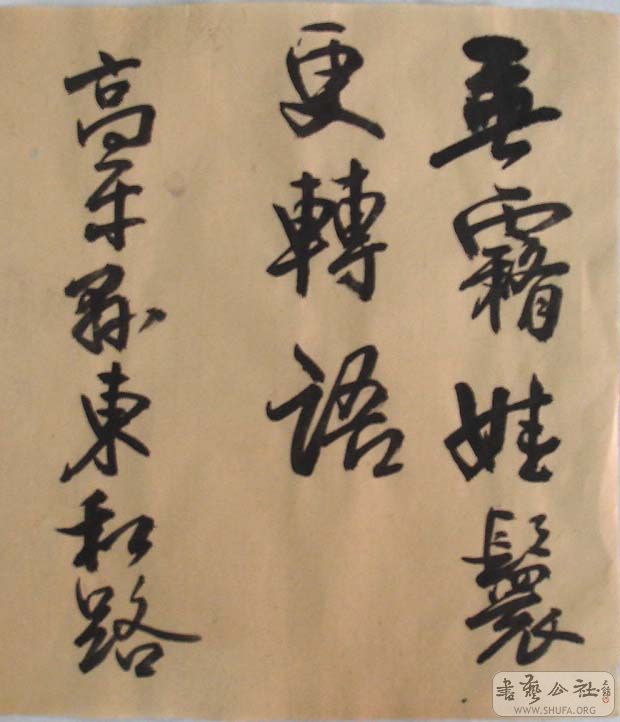 無霜娃鬟
更轉語
高平縣東和路
書藝公社
WWW.SHUFA.ORG